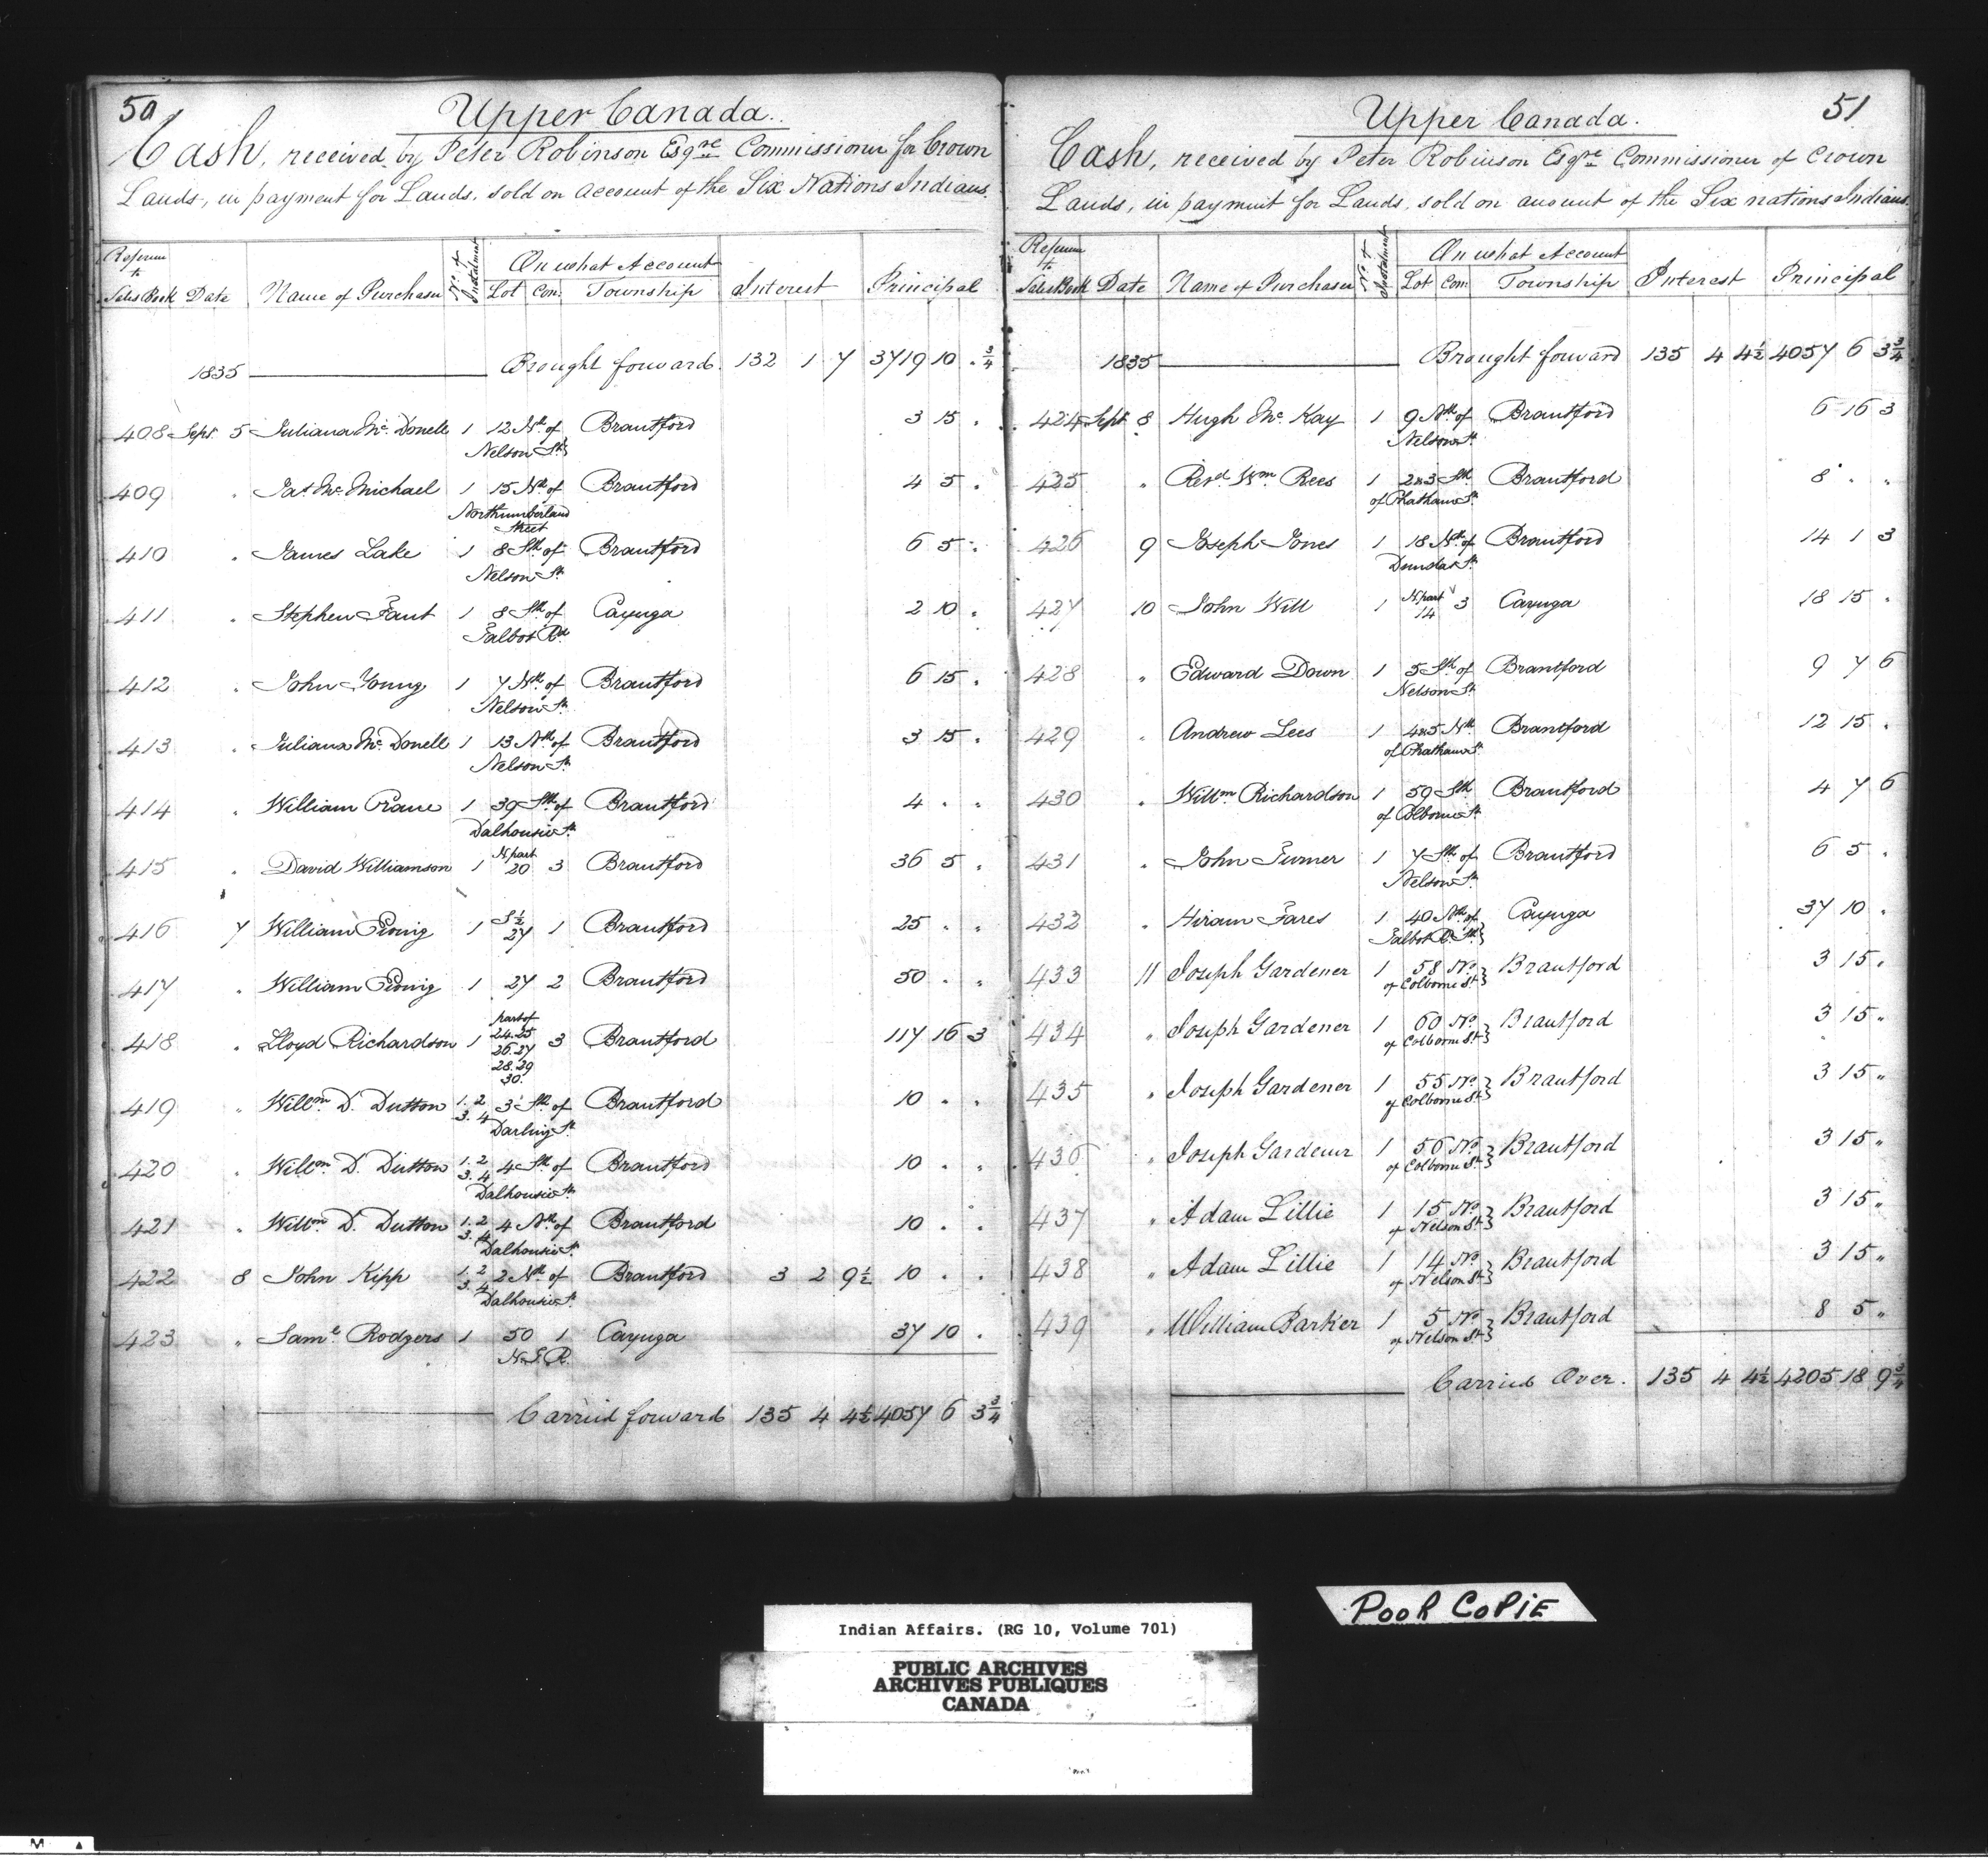 50
Upper Canada.
Cash, received, by Peter Robinson Esqre Commissioner for Crown
Lands, in payment for Lands, sold on Account of the Six Nations Indians.
Sales Book Date Name of Purchaser No. of Instalment On what Account Lot Con: Township Interest Principal
1835 Brought forward. 132 1 7 3719 10 . 3/4
408 Sept. 5 Juliana Mc. Donell 1 12 Nth. of Nelson St. Brantford 3 15 .
409 " Jas. Mc. Michael 1 15 Nth. of Northumberland Street Brantford 4 5 .
410 " James Lake 1 8 Sth. of Nelson St. Brantford 6 5 .
411 " Stephen Faut 1 8 Sth. of Talbot Rd. Cayuga 2 10 .
412 " John Young 1 7 Nth. of Nelson St. Brantford 6 15 .
413 " Juliana Mc. Donell 1 13 Nth. of Nelson St. Brantford 3 15 .
414 " William Crane 1 39 Sth. of Dalhousie St. Brantford 4 . .
415 " David Williamson 1 N. part 20 3 Brantford 36 5 .
416 7 William 1 S 1/2 27 1 Brantford 25 . .
417 " William 1 27 2 Brantford 50 . .
418 " Lloyd Richardson 1 part of 24.25 26.27 28.29 30. 3 Brantford 117 16 3
419 " Willm. D. Dutton 1.2 3.4 3 Sth. of Darling St. Brantford 10 . .
420 " Willm. D. Dutton 1.2 3.4 4 Sth. of Dalhousie St. Brantford 10 . .
421 " Willm. D. Dutton 1.2 3.4 4 Nth. of Dalhousie St. Brantford 10 . .
422 8 John Kipp 1.2 3.4 2 Nth. of Dalhousie St. Brantford 3 2 9 1/2 10 . .
423 " Saml. Rodgers 1 50 1 N.T.R. Cayuga 37 10 .
Carried forward 135 4 4 1/2 4057 6 3 3/4
51
Upper Canada.
Cash, received by Peter Robinson Esqre Commissioner of Crown
Lands, in payment for Lands, sold on account of the Six nations Indians.
Sales Book Date Name of Purchaser No. of Instalment On what Account Lot Con: Township Interest Principal
1835 Brought forward 135 4 4 1/2 4057 6 3 3/4
424 Sept 8 Hugh Mc. Kay 1 9 Nth. of Nelson St. Brantford 6 16 3
425 " Revd. Wm. Rees 1 2 & 3 Sth of Chatham St. Brantford 8 . .
426 9 Joseph Jones 1 18 Nth. of Dundas St. Brantford 14 1 3
427 10 John Will 1 N. part 14 3 Cayuga 18 15 .
428 " Edward Down 1 5 Sth. of Nelson St. Brantford 9 7 6
429 " Andrew Lees 1 4 & 5 Nth of Chatham St. Brantford 12 15 .
430 " Willm. Richardson 1 59 Sth of Colborne St. Brantford 4 7 6
431 " John Turner 1 7 Sth. of Nelson St. Brantford 6 5 .
432 " Hiram Fares 1 40 Nth. of Talbot R. St. Cayuga 37 10 .
433 11 Joseph Gardener 1 58 No. of Colborne St. Brantford 3 15 "
434 " Joseph Gardener 1 60 No. of Colborne St. Brantford 3 15 "
435 " Joseph Gardener 1 55 No. of Colborne St. Brantford 3 15 "
436 " Joseph Gardener 1 56 No. of Colborne St. Brantford 3 15 "
437 " Adam Lillie 1 15 No. of Nelson St. Brantford 3 15 "
438 " Adam Lillie 1 14 No. of Nelson St. Brantford 3 15 "
439 " William Barker 1 5 No. of Nelson St. Brantford 8 5 "
Carried Over. 135 4 4 1/2 4205 18 9 3/4
POOR COPIE
Indian Affairs. (RG 10, Volume 701)
PUBLIC ARCHIVES
ARCHIVES PUBLIQUES
CANADA